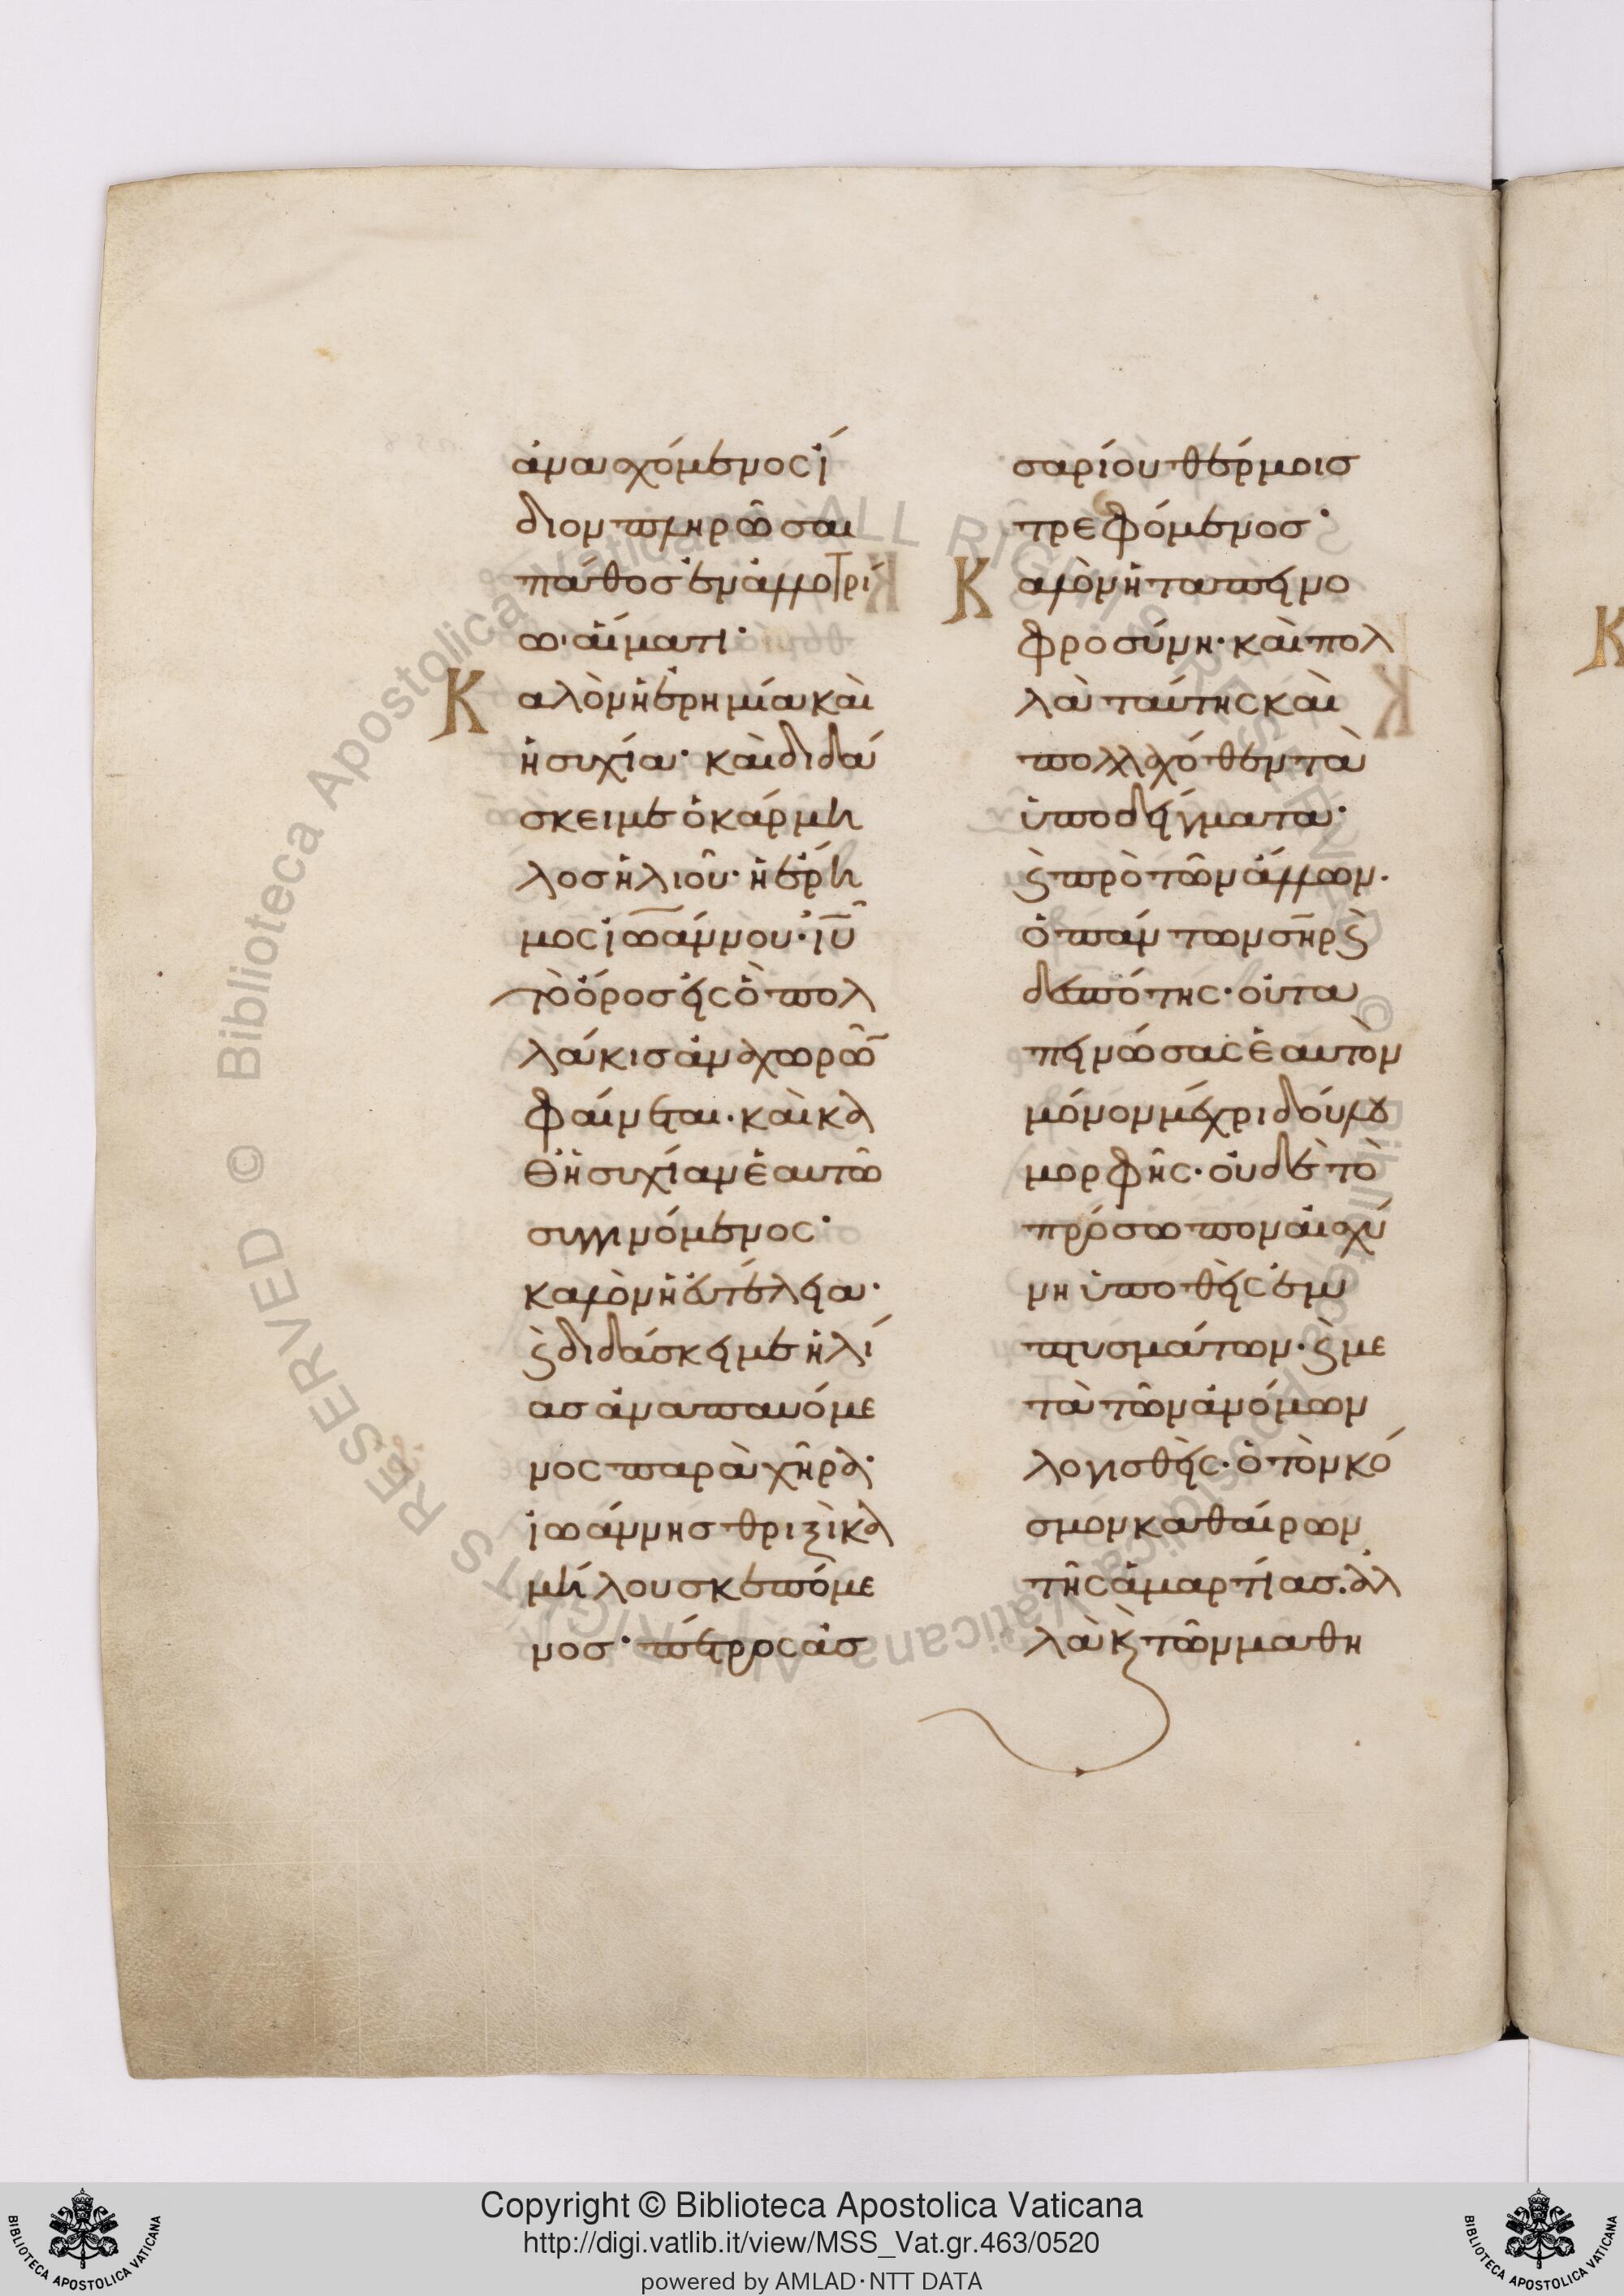 ἀναισχόμενος ἴ
διον πληρῶσαι
πάθος ἐν ἀλλοτρί
ω αἵματι·
Καλὸν ἡ ἐρημία καὶ
ἡσυχία· καὶ διδά
σκει με ὁ κάρμη
λος ἡλιοῦ· ἡ ἔρη
μος ἰωάννου· ἰῡ
τὸ ὄρος εἰς ὃ πολ
λάκις ἀναχωρῶ̄
φαίνεται· καὶ κα
θ ἡσυχίαν ἑαυτῶ
συγγινόμενος·
καλὸν ἡ εὐτέλεια·
ϛ̀ διδάσκει με ἠλί
ας ἀναπαυόμε
νος παρὰ χήρα·
ἰωάννης θριξὶ κα
μήλου σκεπόμε
νος· πέτρος ἀσ
σαρίου θέρμοις
τρεφόμενος·
Καλὸν ἡ ταπεινο
φροσύνη· καὶ πολ
λὰ ταύτης καὶ
πολλαχόθεν τὰ
ὑποδείγματα·
ϛ̀ πρὸ τῶν ἄλλων·
ὁ πάντων σ̄ηρ ϛ̀
δεσπότης· οὐ τα
πεινώσας ἑαυτὸν
μόνον μέχρι δούλου
μορφῆς· οὐδὲ τὸ
πρόσωπον αἰσχύ
νη ὑποθεὶς ἐμ
πτυσμάτων· ϛ̀ με
τὰ τῶν ἀνόμων
λογισθείς· ὁ τὸν κό
σμον καθαίρων
τῆς ἁμαρτίας· ἀλ
λὰ κ̀ τῶν μαθη
Copyright © Biblioteca Apostolica Vaticana
http://digi.vatlib.it/view/MSS_Vat.gr.463/0520
powered by AMLAD·NTT DATA